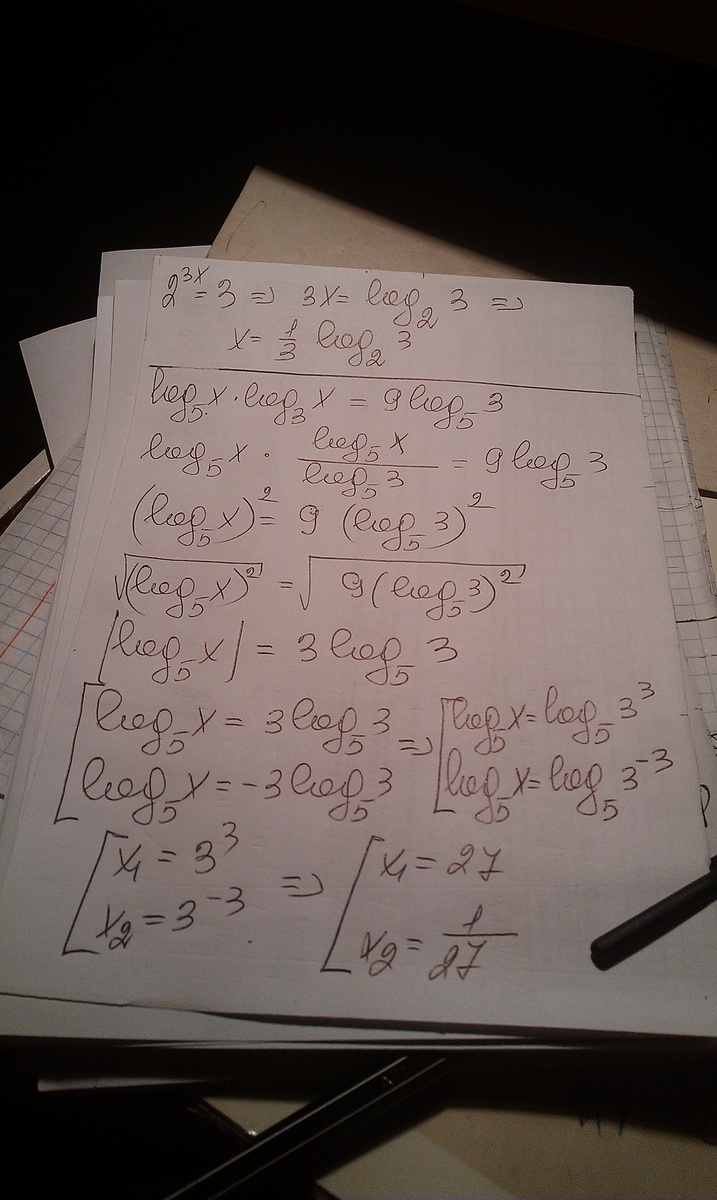 2^{3x} = 3 ⇒ 3x = log₂ 3 ⇒
x = 1/3 log₂ 3
log₅ x · log₃ x = 9 log₅ 3
log₅ x · (log₅ x)/(log₅ 3) = 9 log₅ 3
(log₅ x)² = 9 (log₅ 3)²
√((log₅ x)²) = √(9 (log₅ 3)²)
|log₅ x| = 3 log₅ 3
[ log₅ x = 3 log₅ 3 ⇒ [ log₅ x = log₅ 3³
log₅ x = -3 log₅ 3 log₅ x = log₅ 3⁻³
[ x₁ = 3³ ⇒ [ x₁ = 27
x₂ = 3⁻³ x₂ = 1/27